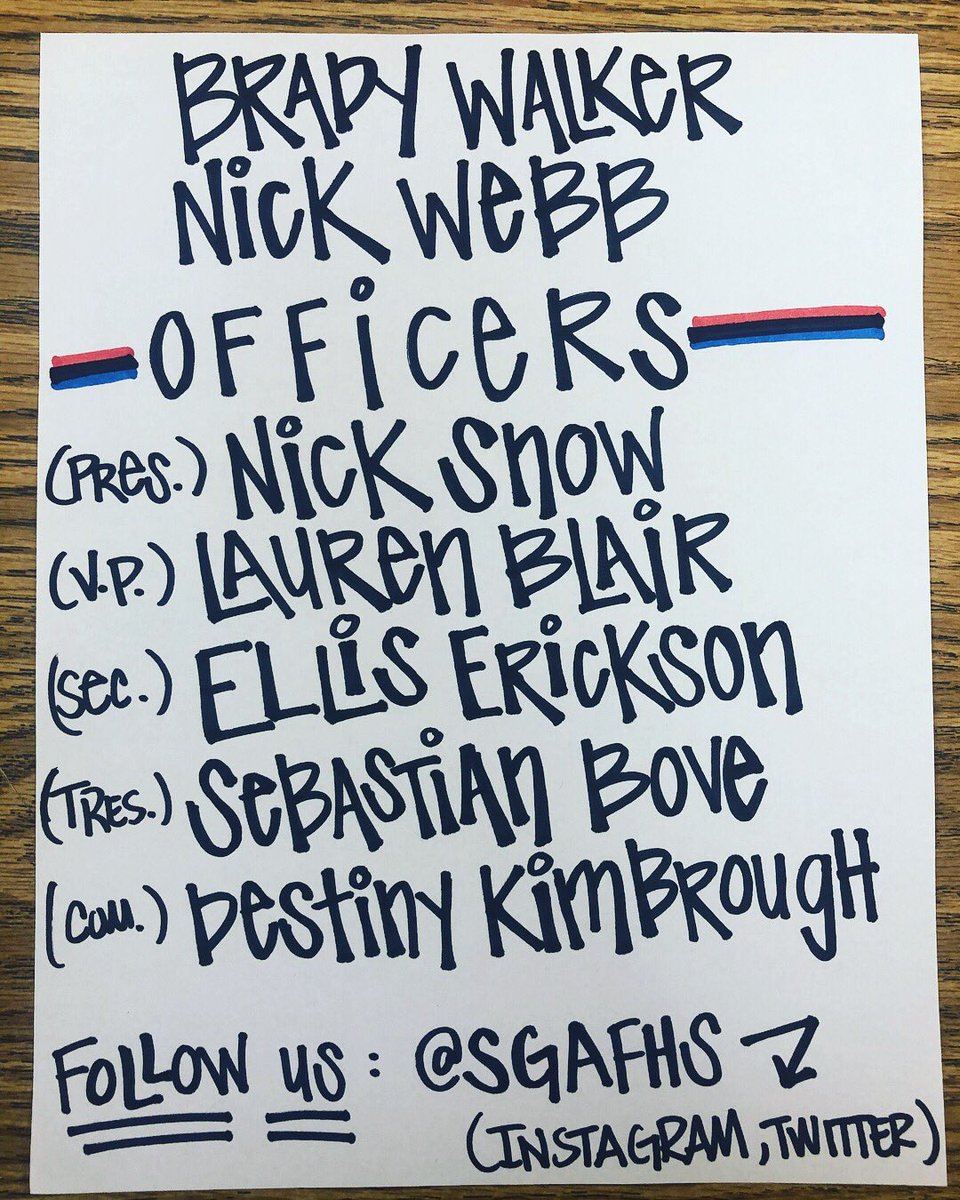 BRADY WALKER
NiCK WeBB
OFFiCeRS
(PRes.) NiCK SnOW
(V.P.) LAURen BLAiR
(Sec.) ELLiS ERiCKSOn
(TRES.) SeBASTiAn BOVe
(COM.) DestinY KimBROugH
FOLLOW US : @SGAFHS
(INSTAGRAM, TWITTER)